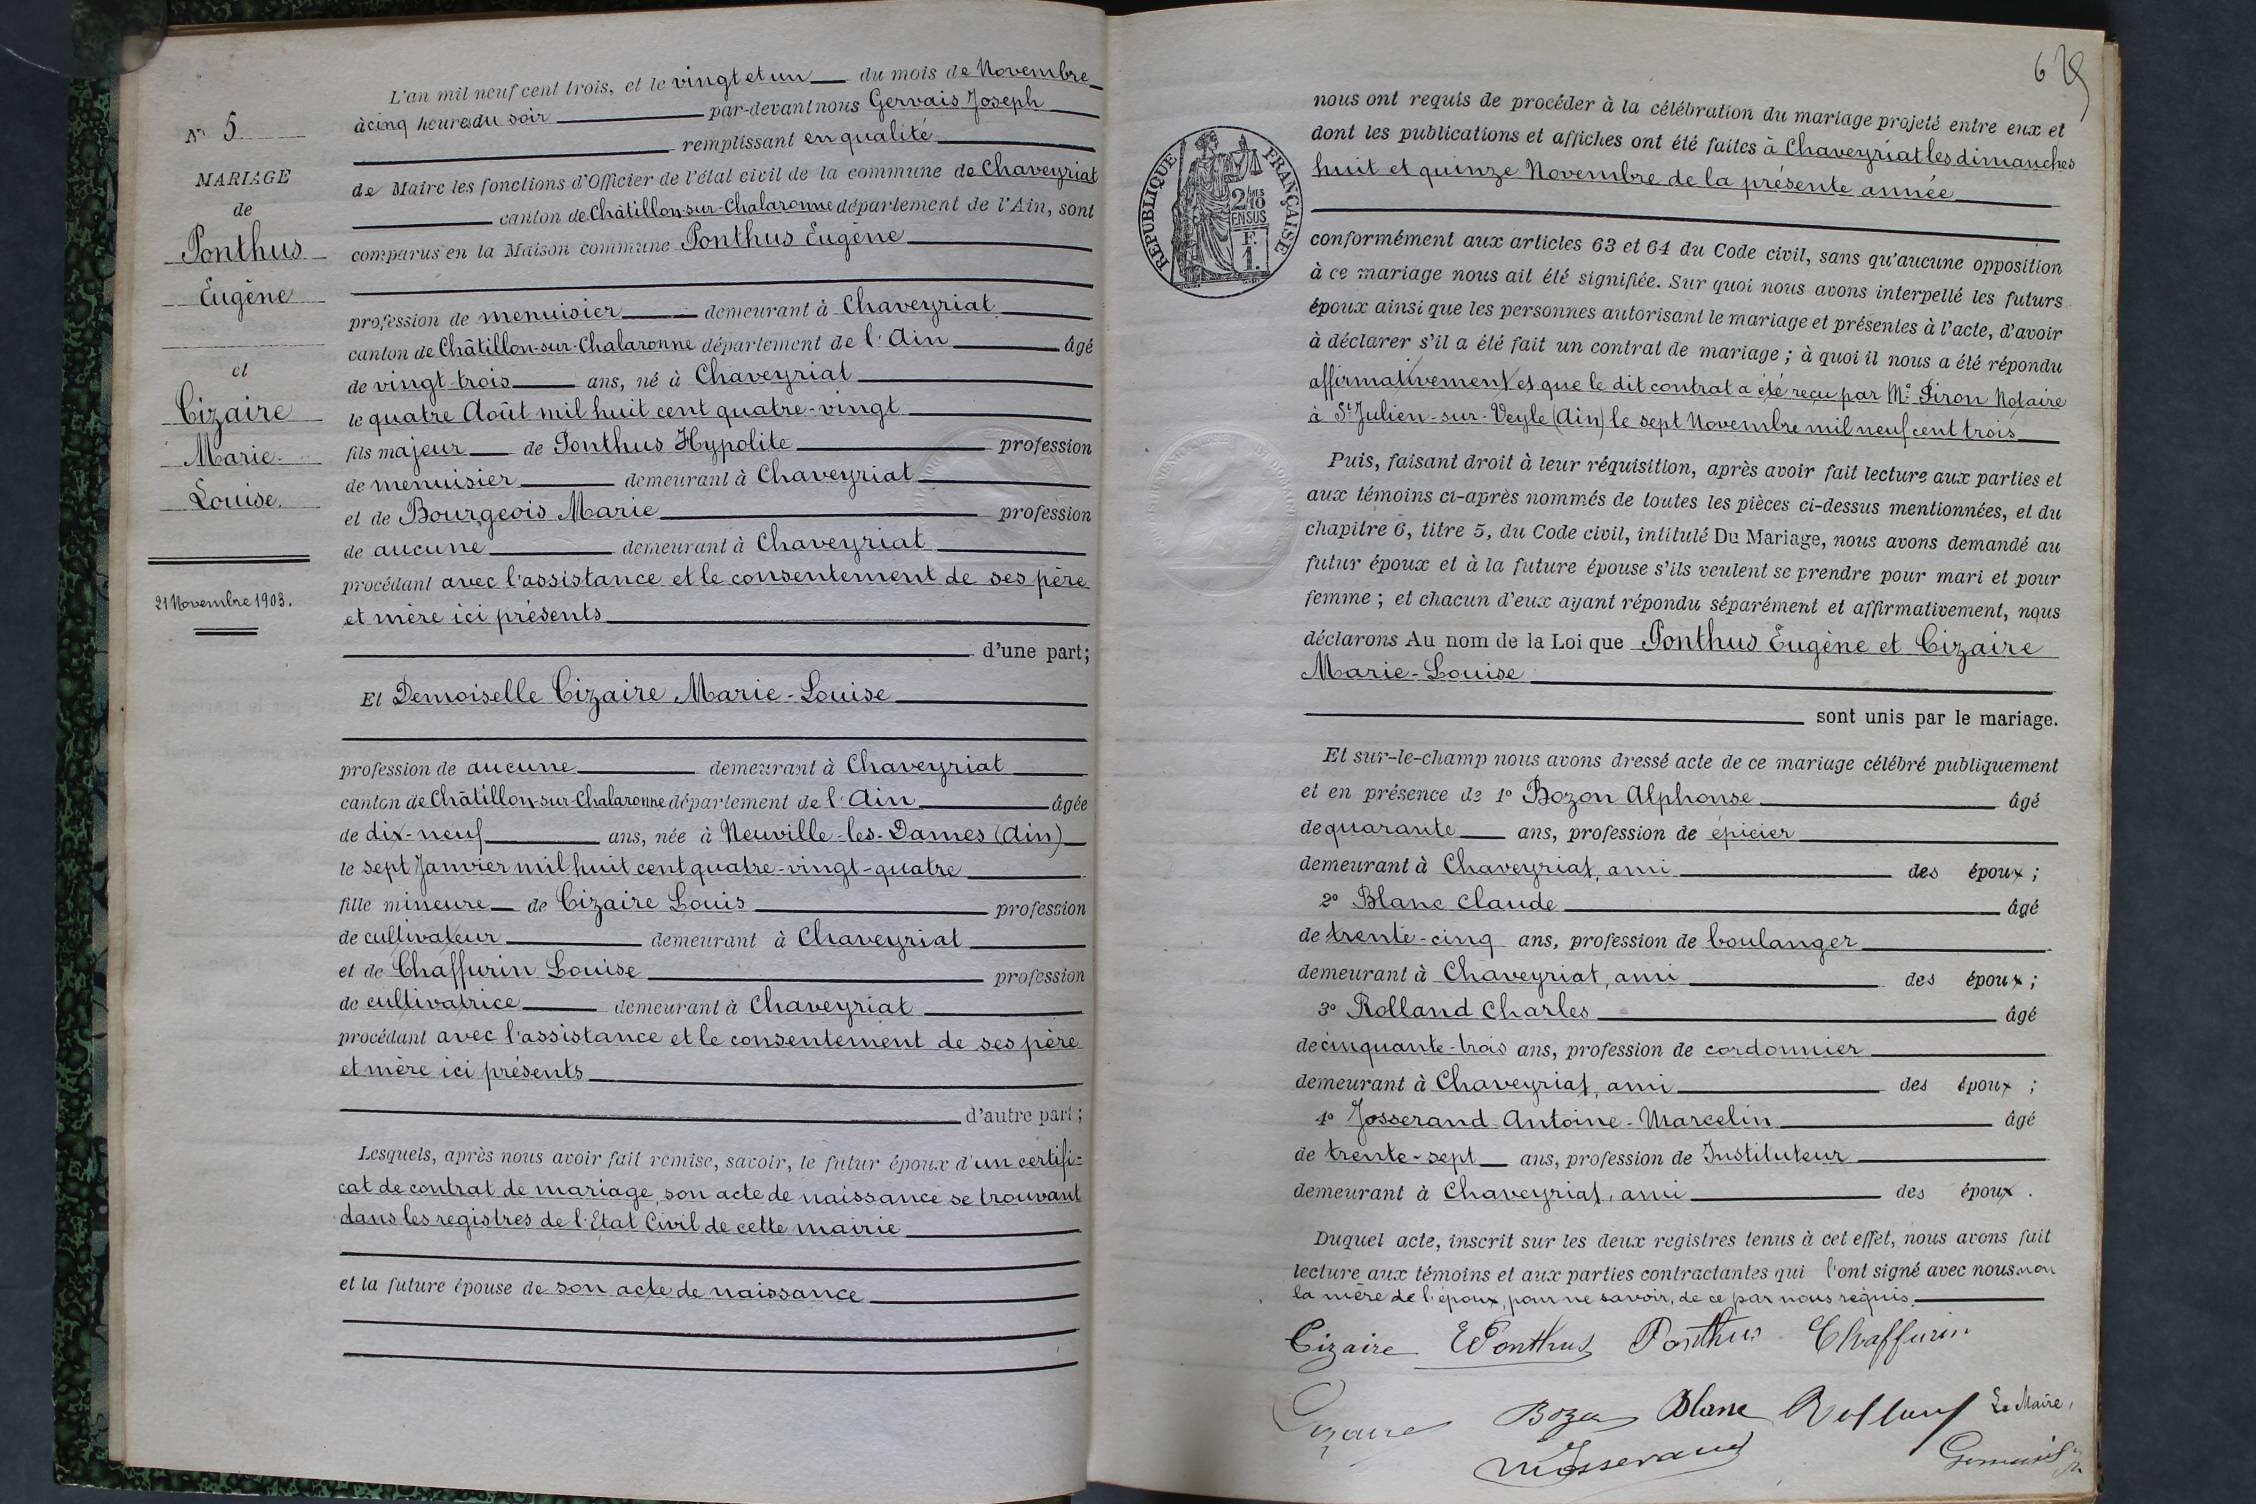 N° 5
MARIAGE
de
Ponthus
Eugène
et
Cizaire
Marie-
Louise.
21 Novembre 1903.
L'an mil neuf cent trois, et le vingt et un du mois de Novembre
à cinq heures du soir par-devant nous Gervais Joseph
remplissant en qualité
de Maire les fonctions d'Officier de l'état civil de la commune de Chaveyriat
canton de Châtillon-sur-Chalaronne département de l'Ain, sont
comparus en la Maison commune Ponthus Eugène
profession de menuisier demeurant à Chaveyriat
canton de Châtillon-sur-Chalaronne département de l'Ain âgé
de vingt-trois ans, né à Chaveyriat
le quatre Août mil huit cent quatre-vingt
fils majeur de Ponthus Hypolite profession
de menuisier demeurant à Chaveyriat
et de Bourgeois Marie profession
de aucune demeurant à Chaveyriat
procédant avec l'assistance et le consentement de ses père
et mère ici présents
d'une part;
Et Demoiselle Cizaire Marie-Louise
profession de aucune demeurant à Chaveyriat
canton de Châtillon-sur-Chalaronne département de l'Ain âgée
de dix-neuf ans, née à Neuville-les-Dames (Ain)
le sept Janvier mil huit cent quatre-vingt-quatre
fille mineure de Cizaire Louis profession
de cultivateur demeurant à Chaveyriat
et de Chaffurin Louise profession
de cultivatrice demeurant à Chaveyriat
procédant avec l'assistance et le consentement de ses père
et mère ici présents
d'autre part;
Lesquels, après nous avoir fait remise, savoir, le futur époux d'un certifi-
cat de contrat de mariage, son acte de naissance se trouvant
dans les registres de l'Etat Civil de cette mairie
et la future épouse de son acte de naissance
6
RÉPUBLIQUE FRANÇAISE
2/10
EN SUS
F.
1.
nous ont requis de procéder à la célébration du mariage projeté entre eux et
dont les publications et affiches ont été faites à Chaveyriat les dimanches
huit et quinze Novembre de la présente année
conformément aux articles 63 et 64 du Code civil, sans qu'aucune opposition
à ce mariage nous ait été signifiée. Sur quoi nous avons interpellé les futurs
époux ainsi que les personnes autorisant le mariage et présentes à l'acte, d'avoir
à déclarer s'il a été fait un contrat de mariage ; à quoi il nous a été répondu
affirmativement et que le dit contrat a été reçu par Me Piron Notaire
à St Julien-sur-Veyle (Ain) le sept Novembre mil neuf cent trois
Puis, faisant droit à leur réquisition, après avoir fait lecture aux parties et
aux témoins ci-après nommés de toutes les pièces ci-dessus mentionnées, et du
chapitre 6, titre 5, du Code civil, intitulé Du Mariage, nous avons demandé au
futur époux et à la future épouse s'ils veulent se prendre pour mari et pour
femme ; et chacun d'eux ayant répondu séparément et affirmativement, nous
déclarons Au nom de la Loi que Ponthus Eugène et Cizaire
Marie-Louise
sont unis par le mariage.
Et sur-le-champ nous avons dressé acte de ce mariage célébré publiquement
et en présence de 1° Bozon Alphonse âgé
de quarante ans, profession de épicier
demeurant à Chaveyriat, ami des époux ;
2° Blanc Claude âgé
de trente-cinq ans, profession de boulanger
demeurant à Chaveyriat, ami des époux ;
3° Rolland Charles âgé
de cinquante-trois ans, profession de cordonnier
demeurant à Chaveyriat, ami des époux ;
4° Josserand Antoine-Marcelin âgé
de trente-sept ans, profession de Instituteur
demeurant à Chaveyriat, ami des époux.
Duquel acte, inscrit sur les deux registres tenus à cet effet, nous avons fait
lecture aux témoins et aux parties contractantes qui l'ont signé avec nous non
la mère de l'époux, pour ne savoir, de ce par nous requis.
Cizaire EPonthus Ponthus Chaffurin
Cizaire Bozon Blanc Rolland Le Maire,
MJosserand Gervais